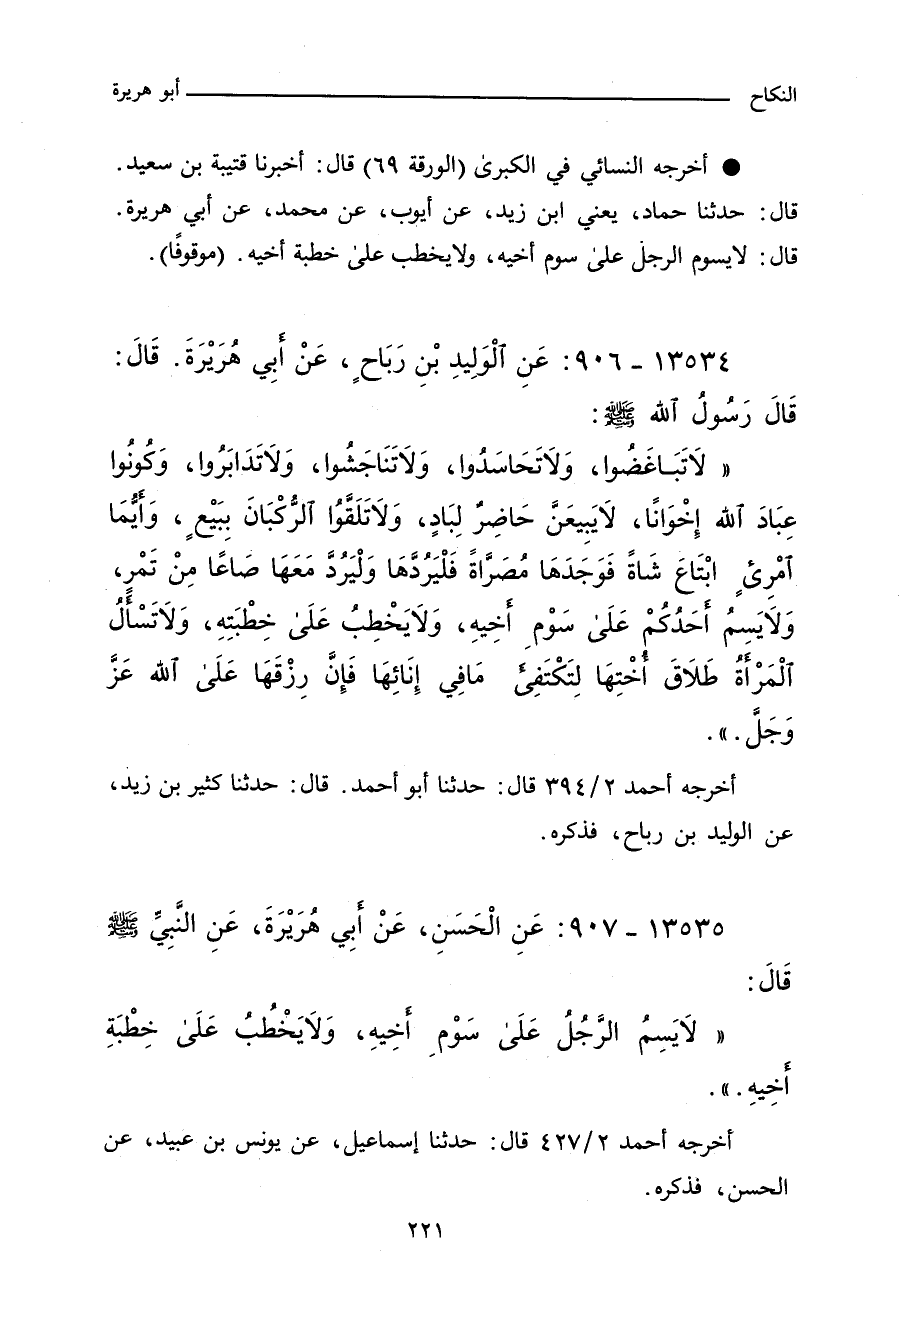 النكاح ــــــــــــــــــــ أبو هريرة
● أخرجه النسائي في الكبرىٰ (الورقة ٦٩) قال: أخبرنا قتيبة بن سعيد.
قال: حدثنا حماد، يعني ابن زيد، عن أيوب، عن محمد، عن أبي هريرة.
قال: لايسوم الرجل علىٰ سوم أخيه، ولايخطب علىٰ خطبة أخيه. (موقوفًا).
١٣٥٣٤ - ٩٠٦: عَنِ ٱلْوَلِيدِ بْنِ رَبَاحٍ، عَنْ أَبِي هُرَيْرَةَ. قَالَ:
قَالَ رَسُولُ ٱلله ﷺ:
« لَاتَبَاغَضُوا، وَلَاتَحَاسَدُوا، وَلَاتَنَاجَشُوا، وَلَاتَدَابَرُوا، وَكُونُوا
عِبَادَ ٱلله إِخْوَانًا، لَايَبِيعَنَّ حَاضِرٌ لِبَادٍ، وَلَاتَلَقَّوُا ٱلرُّكْبَانَ بِبَيْعٍ، وَأَيُّمَا
ٱمْرِئٍ ابْتَاعَ شَاةً فَوَجَدَهَا مُصَرَّاةً فَلْيَرُدَّهَا وَلْيَرُدَّ مَعَهَا صَاعًا مِنْ تَمْرٍ،
وَلَايَسِمُ أَحَدُكُمْ عَلَىٰ سَوْمِ أَخِيهِ، وَلَايَخْطِبُ عَلَىٰ خِطْبَتِهِ، وَلَاتَسْأَلُ
ٱلْمَرْأَةُ طَلَاقَ أُخْتِهَا لِتَكْتَفِئَ مَافِي إِنَائِهَا فَإِنَّ رِزْقَهَا عَلَىٰ ٱلله عَزَّ
وَجَلَّ.».
أخرجه أحمد ٣٩٤/٢ قال: حدثنا أبو أحمد. قال: حدثنا كثير بن زيد،
عن الوليد بن رباح، فذكره.
١٣٥٣٥ - ٩٠٧: عَنِ الْحَسَنِ، عَنْ أَبِي هُرَيْرَةَ، عَنِ النَّبِيِّ ﷺ
قَالَ:
« لَايَسِمُ الرَّجُلُ عَلَىٰ سَوْمِ أَخِيهِ، وَلَايَخْطُبُ عَلَىٰ خِطْبَةِ
أَخِيهِ.».
أخرجه أحمد ٤٢٧/٢ قال: حدثنا إسماعيل، عن يونس بن عبيد، عن
الحسن، فذكره.
٢٢١